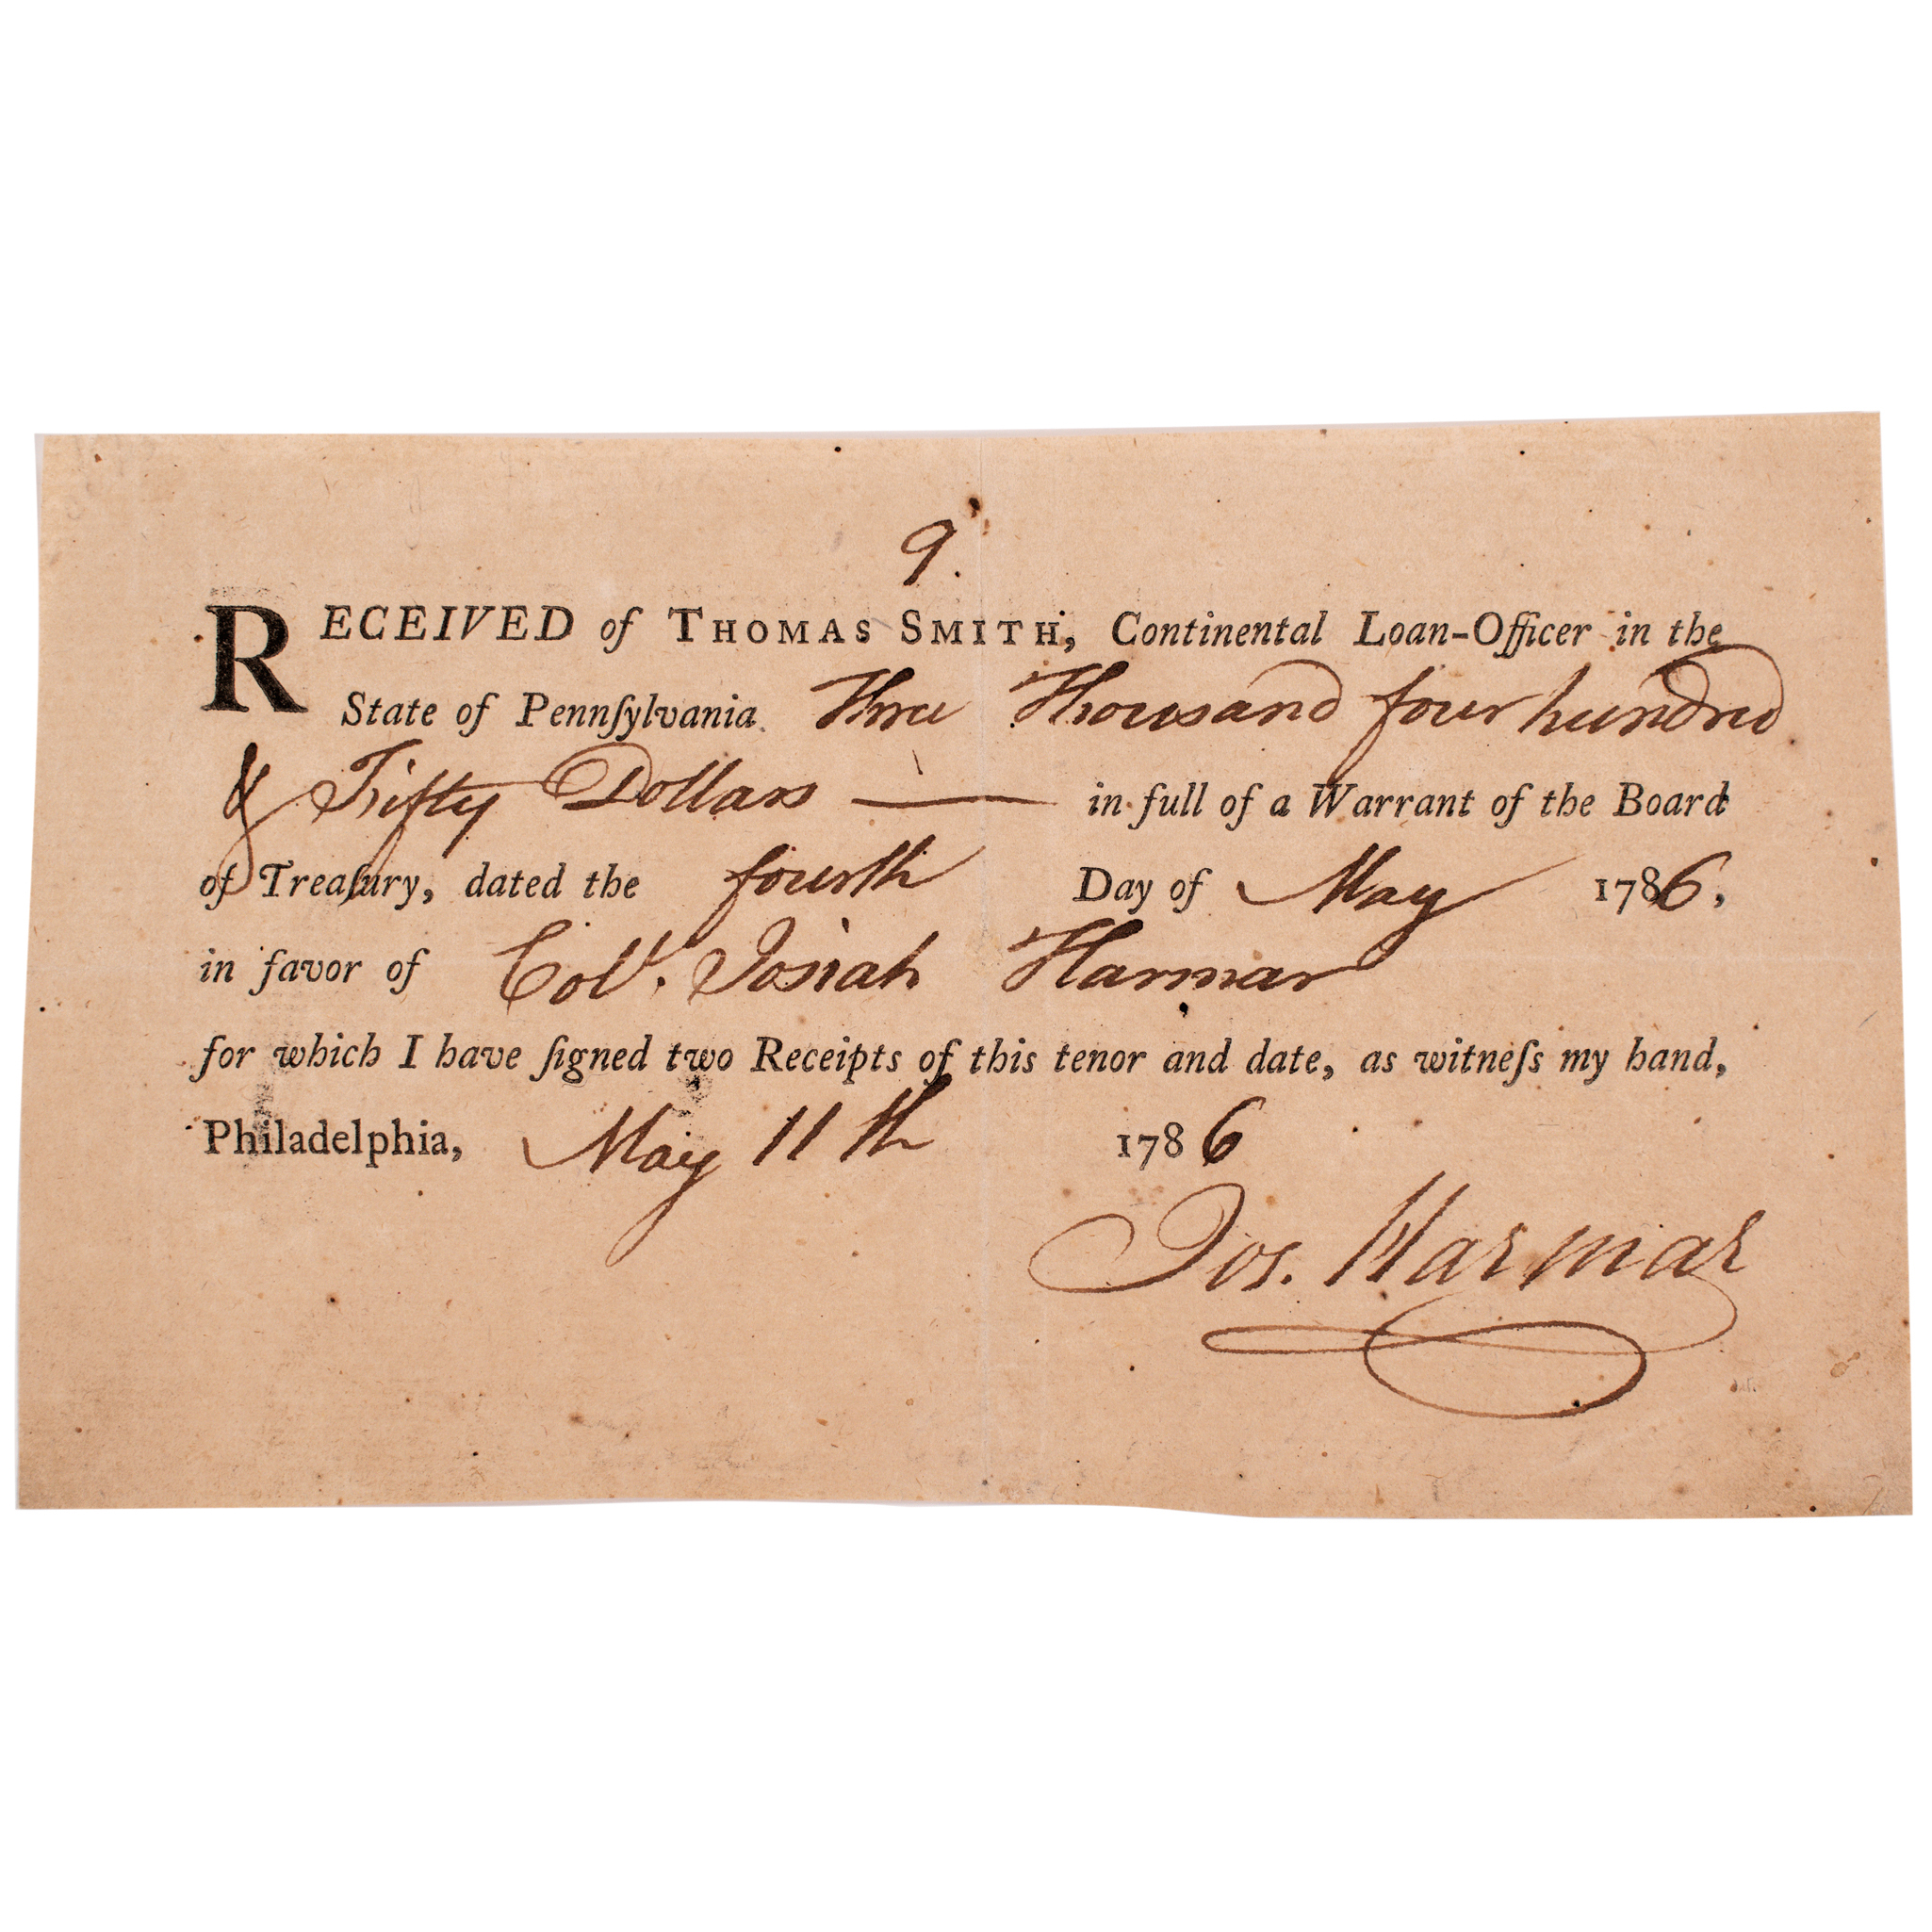 9.
RECEIVED of THOMAS SMITH, Continental Loan-Officer in the
State of Pennſylvania Three Thousand four hundred
& Fifty Dollars — in full of a Warrant of the Board
of Treaſury, dated the fourth Day of May 1786,
in favor of Coll. Josiah Harmar
for which I have ſigned two Receipts of this tenor and date, as witneſs my hand,
Philadelphia, May 11th 1786
Jos. Harmar